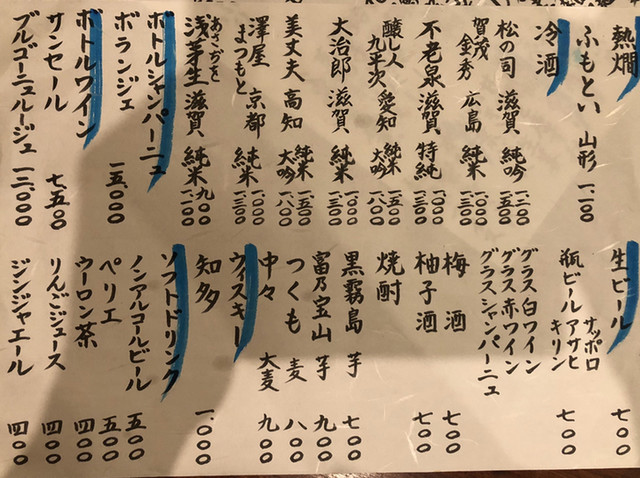 熱燗
ふもとい 山形 一、一〇〇
冷酒
松の司 滋賀 純吟 一、二〇〇 一、五〇〇
賀茂金秀 広島 純米 一、〇〇〇 一、三〇〇
不老泉 滋賀 特純 一、〇〇〇 一、三〇〇
醸し人九平次 愛知 純米大吟 一、五〇〇 一、八〇〇
大治郎 滋賀 純米 一、〇〇〇 一、三〇〇
美丈夫 高知 純米大吟 一、五〇〇 一、八〇〇
澤屋まつもと 京都 純米 一、〇〇〇 一、三〇〇
あさぢを
浅茅生 滋賀 純米 九〇〇 一、一〇〇
ボトルシャンパーニュ
ボランジェ 一五、〇〇〇
ボトルワイン
サンセール 七五〇〇
ブルゴーニュルージュ 一二、〇〇〇
生ビール サッポロ 七〇〇
瓶ビール アサヒ キリン 七〇〇
グラス白ワイン
グラス赤ワイン
グラスシャンパーニュ
梅酒 七〇〇
柚子酒 七〇〇
焼酎
黒霧島 芋 七〇〇
富乃宝山 芋 九〇〇
つくも 麦 八〇〇
中々 大麦 九〇〇
ウィスキー
知多 一、〇〇〇
ソフトドリンク
ノンアルコールビール 五〇〇
ペリエ 五〇〇
ウーロン茶 四〇〇
りんごジュース 四〇〇
ジンジャエール 四〇〇